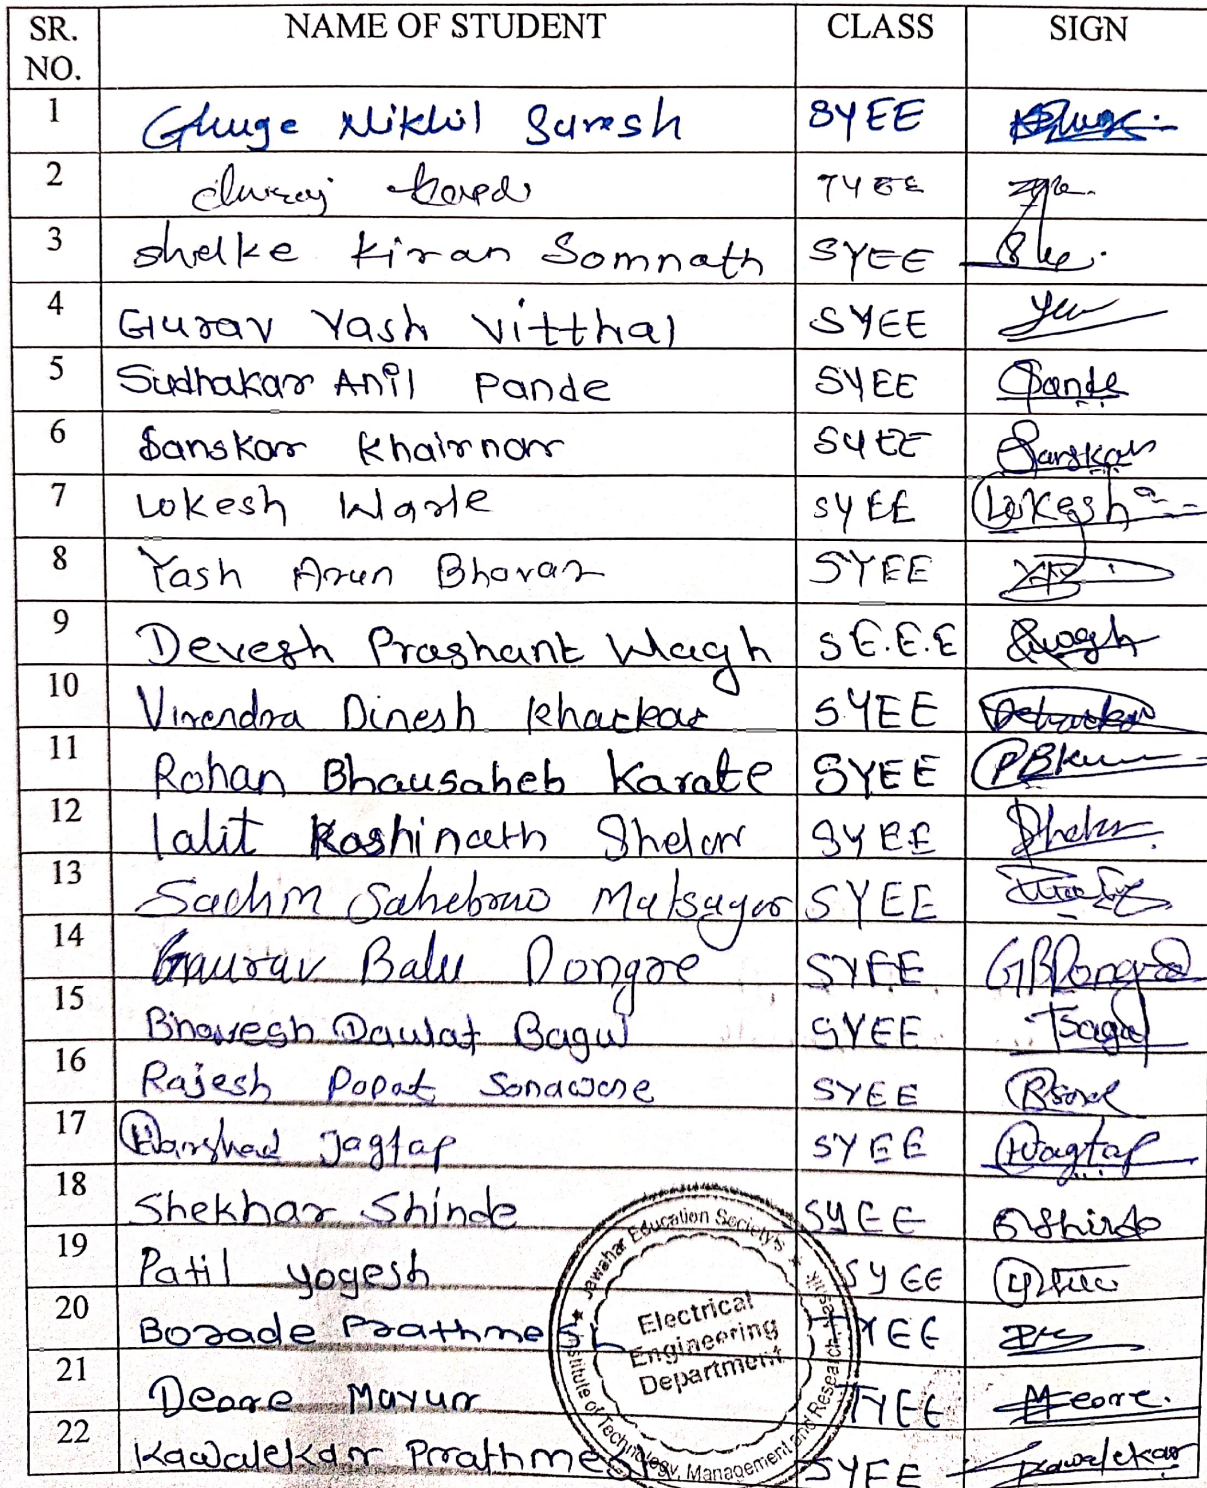 SR. NO. NAME OF STUDENT CLASS SIGN
1 Ghuge Nikhil Suresh SYEE
2 TYEE
3 Shelke Kiran Somnath SYEE
4 Gurav Yash Vitthal SYEE
5 Sudhakar Anil Pande SYEE Pande
6 Sanskar Khairnar SYEE Sanskar
7 Lokesh Warle SYEE Lokesh
8 Yash Arun Bhavar SYEE
9 Devesh Prashant Wagh S.E.E.E Wagh
10 Virendra Dinesh Kharkar SYEE
11 Rohan Bhausaheb Karate SYEE
12 lalit Kashinath Shelar SYEE
13 Sachin Sahebrao Matsagar SYEE
14 Gaurav Balu Dongre SYEE GBDongre
15 Bhavesh Daulat Bagul SYEE Bagul
16 Rajesh Popat Sonawane SYEE
17 Harshad Jagtap SYEE HJagtap
18 Shekhar Shinde SYEE SShinde
19 Patil yogesh SYEE
20 Borade Prathmesh TYEE
21 Deore Mayur TYEE MDeore.
22 Kawalekar Prathmesh SYEE Kawalekar
Jawahar Education Society's
Institute of Technology, Management and Research, Nashik
Electrical
Engineering
Department